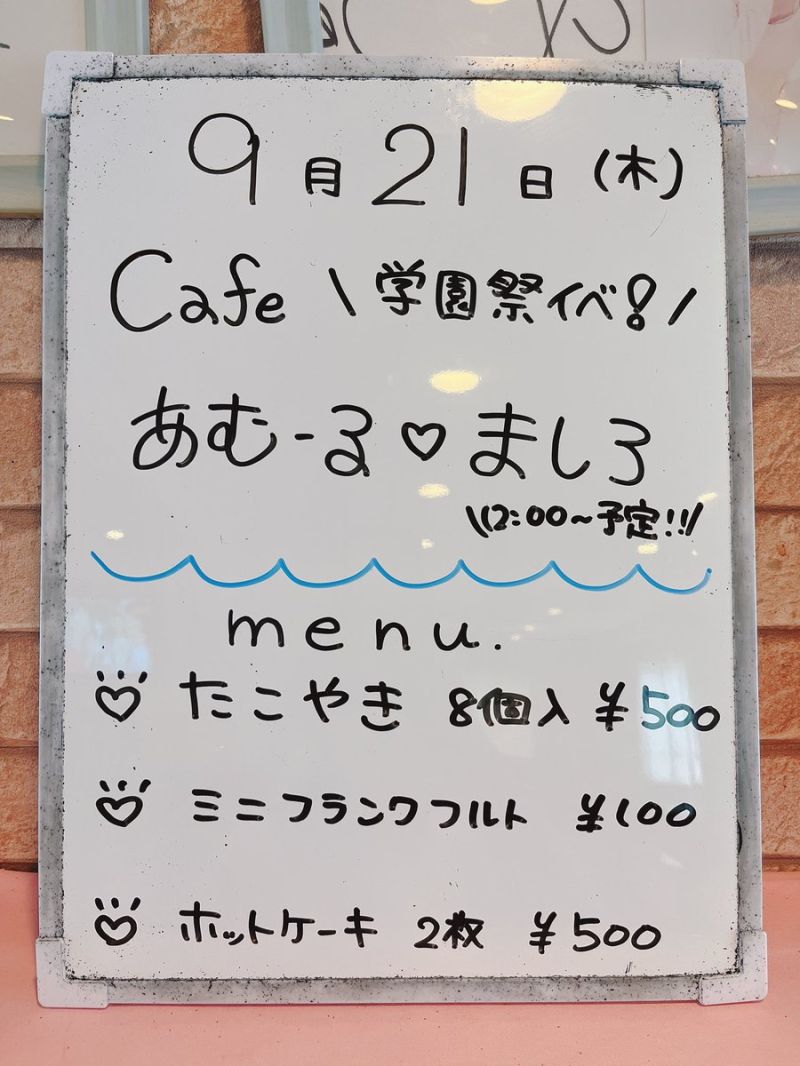 9月21日(木)
Cafe \学園祭イベ!/
あむーる♡ましろ
\12:00~予定!!/
menu.
♡ たこやき 8個入 ¥500
♡ ミニフランクフルト ¥100
♡ ホットケーキ 2枚 ¥500